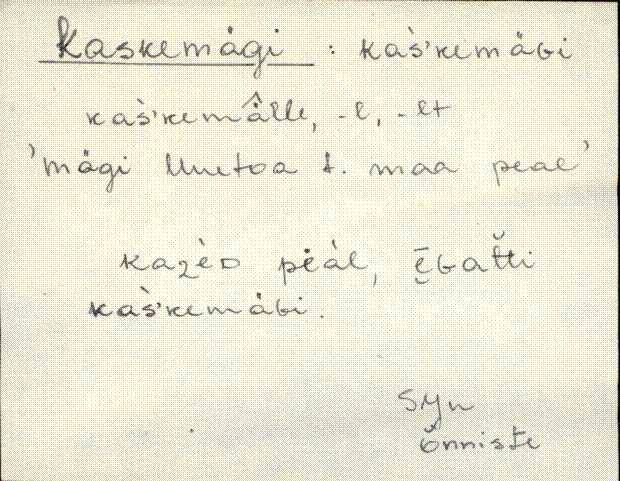 Kaskemägi : kas̀'kemäGi
kas̀'kemä̂lle, -l, -lt
'mägi Uuetoa t. maa peal'
kazèD pèäl, ē̮Gat̆ti
kas̀'kemäGi.
SJn
Õnniste